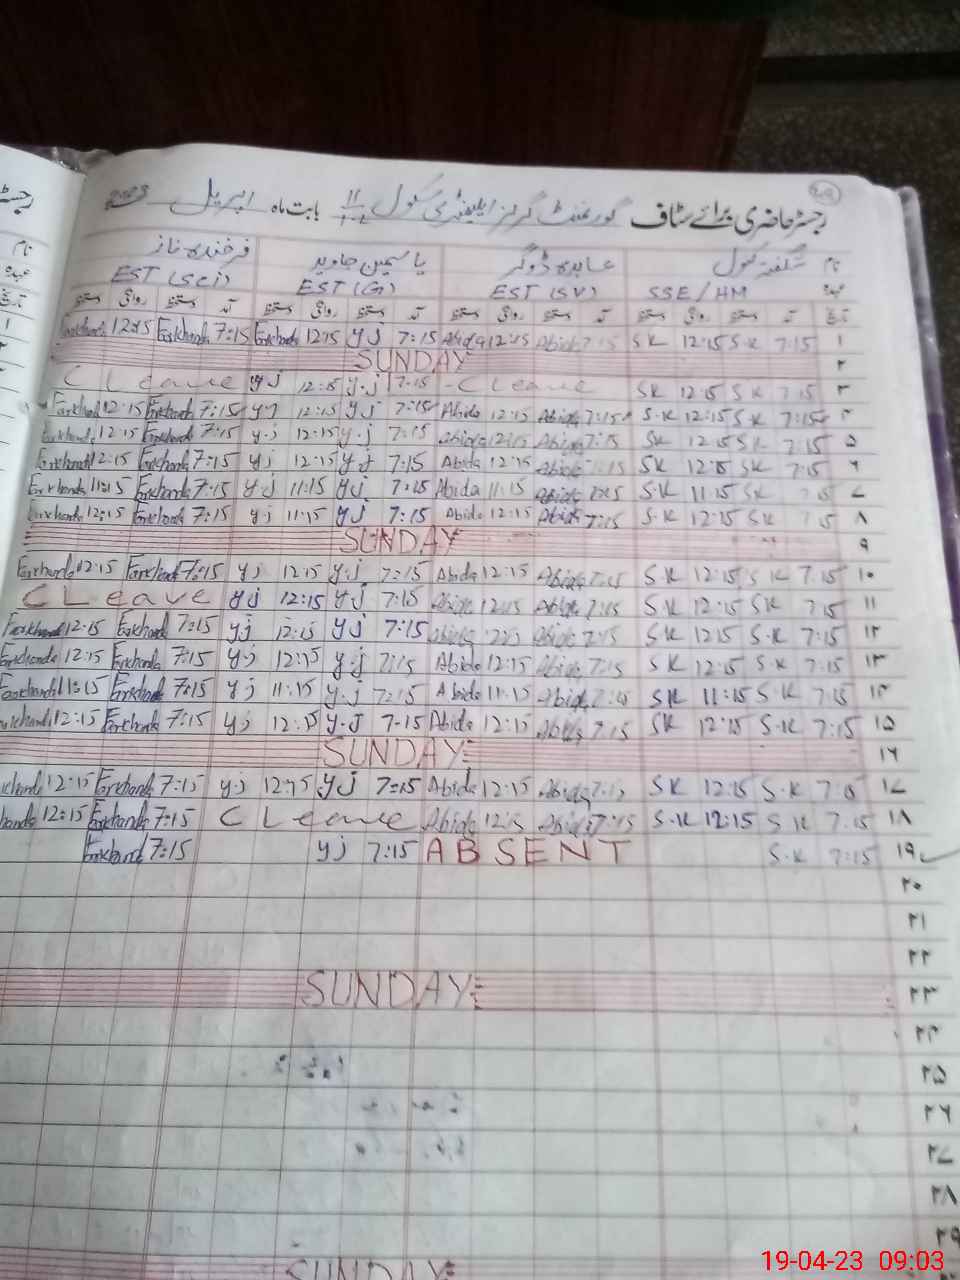 رجسٹر حاضری برائے سٹاف گورنمنٹ گرلز ایلیمنٹری سکول بابت ماہ اپریل 2023
نام شگفتہ کنول عابدہ ڈوگر یاسمین جاوید فرخندہ ناز
عہدہ SSE/HM EST (SV) EST (G) EST (Sci)
تاریخ آمد دستخط روانگی دستخط آمد دستخط روانگی دستخط آمد دستخط روانگی دستخط آمد دستخط روانگی دستخط
Farkhanda 12:15 Farkhanda 7:15 Farkhanda 12:15 yj 7:15 Abida 12:15 Abida 7:15 SK 12:15 SK 7:15 ۱
SUNDAY ۲
C Leave yj 12:15 y.j 7:15 - C Leave SK 12:15 SK 7:15 ۳
Farkhand 12:15 Farkhanda 7:15 yj 12:15 yj 7:15 Abida 12:15 Abida 7:15 S.K 12:15 SK 7:15 ۴
Farkhanda 12:15 Farkhanda 7:15 y.j 12:15 y.j 7:15 Abida 12:15 Abida 7:15 SK 12:15 SK 7:15 ۵
Farkhanda 12:15 Farkhanda 7:15 yj 12:15 y.j 7:15 Abida 12:15 Abida SK 12:15 SK 7:15 ۶
Farkhanda 11:15 Farkhanda 7:15 y.j 11:15 yj 7:15 Abida 11:15 Abida 7:15 S.K 11:15 SK 7:15 ۷
Farkhanda 12:15 Farkhanda 7:15 y.j 11:15 yj 7:15 Abida 12:15 Abida 7:15 S.K 12:15 SK 7:15 ۸
SUNDAY ۹
Farkhanda 12:15 Farkhand 7:15 yj 12:15 y.j 7:15 Abida 12:15 Abida 7:15 S.K 12:15 S K 7:15 ۱۰
C Leave yj 12:15 yj 7:15 Abida 12:15 Abida 7:15 S.K 12:15 SK 7:15 ۱۱
Farkhanda 12:15 Farkhand 7:15 yj 12:15 yj 7:15 Abida Abida 7:15 SK 12:15 S.K 7:15 ۱۲
Farkhanda 12:15 Farkhanda 7:15 y.j 12:15 y.j 7:15 Abida 12:15 Abida 7:15 SK 12:15 S.K 7:15 ۱۳
Farkhanda 11:15 Farkhanda 7:15 yj 11:15 y.j 7:15 Abida 11:15 Abida 7:15 SK 11:15 S.K 7:15 ۱۴
Farkhanda 12:15 Farkhanda 7:15 yj 12:15 y.j 7-15 Abida 12:15 Abida 7:15 SK 12:15 S.K 7:15 ۱۵
SUNDAY ۱۶
khanda 12:15 Farkhanda 7:15 y.j 12:15 yj 7:15 Abida 12:15 Abida 7:15 SK 12:15 S.K 7:15 ۱۷
handa 12:15 Farkhanda 7:15 C Leave Abida 12:15 Abida 7:15 S.K 12:15 S K 7:15 ۱۸
Farkhand 7:15 yj 7:15 ABSENT S.K 7:15 ۱۹
۲۰
۲۱
۲۲
SUNDAY ۲۳
۲۴
۲۵
۲۶
۲۷
۲۸
۲۹
SUNDAY
19-04-23 09:03